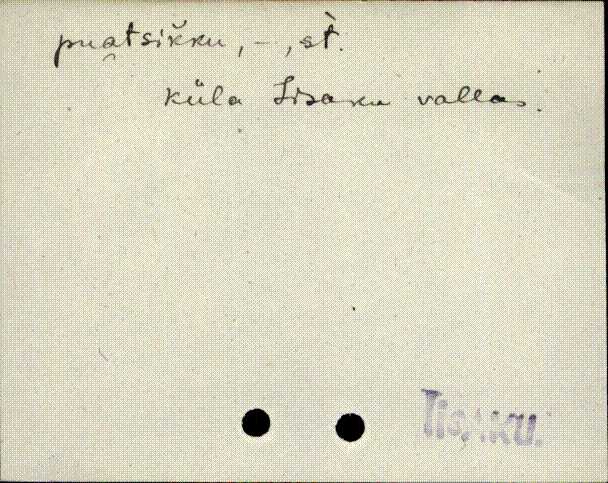 pua̯tsik̆ku, -, st̀.
küla Iisaku vallas.
Iisaku.